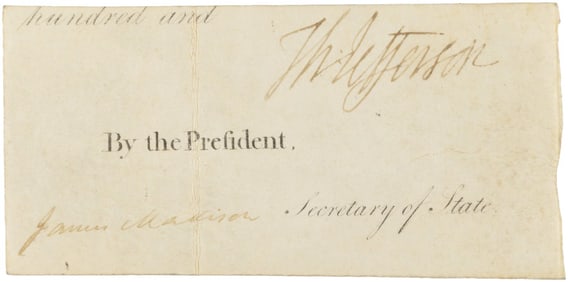 hundred and
Th: Jefferson
By the Preſident,
James Madison Secretary of State.